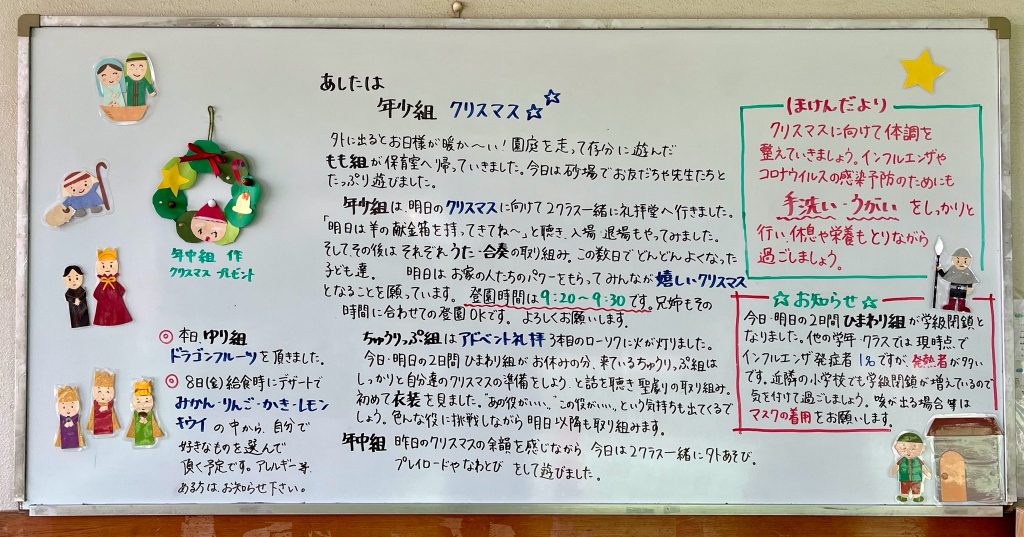 あしたは
年少組 クリスマス☆☆
外に出るとお日様が暖か〜い！園庭を走って存分に遊んだ
もも組が保育室へ帰っていきました。今日は砂場でお友だちや先生たちと
たっぷり遊びました。
年少組は明日のクリスマスに向けて2クラス一緒に礼拝堂へ行きました。
「明日は羊の献金箱を持ってきてね〜」と聴き、入場 退場もやってみました。
そして、その後は それぞれうた・合奏の取り組み。この数日でどんどんよくなった
子ども達。 明日は お家の人たちのパワーをもらって みんなが嬉しいクリスマス
となることを願っています。登園時間は9:20〜9:30です。兄姉もその
時間に合わせての登園OKです。よろしくお願いします。
ちゅうりっぷ組はアドベント礼拝 3本目のローソクに火が灯りました。
今日・明日の2日間 ひまわり組がお休みの分、来ているちゅうりっぷ組は
しっかりと自分達のクリスマスの準備をしよう、と話を聴き 聖劇の取り組み。
初めて衣装を見ました。"あの役がいい。" "この役がいい。" という気持ちも出てくるで
しょう。色んな役に挑戦しながら 明日以降も取り組みます。
年中組 昨日のクリスマスの余韻を感じながら 今日は2クラス一緒に外あそび。
プレイロードやなわとび をして遊びました。
年中組 作
クリスマス プレゼント
◎本日、ゆり組
ドラゴンフルーツを頂きました。
◎8日(金)給食時にデザートで
みかん・りんご・かき・レモン
キウイ の中から、自分で
好きなものを選んで
頂く予定です。アレルギー等、
ある方は、お知らせ下さい。
ほけんだより
クリスマスに向けて体調を
整えていきましょう。インフルエンザや
コロナウイルスの感染予防のためにも
手洗い・うがい をしっかりと
行い、休息や栄養もとりながら
過ごしましょう。
☆お知らせ☆
今日・明日の2日間 ひまわり組が学級閉鎖と
なりました。他の学年・クラスでは現時点で
インフルエンザ発症者 1名ですが、発熱者が多い
です。近隣の小学校でも学級閉鎖が増えているので
気を付けて過ごしましょう。咳が出る場合等は
マスクの着用をお願いします。